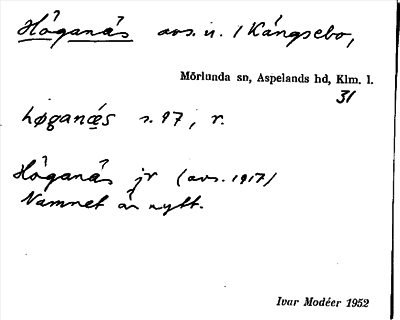 Höganäs avs. u. / Kängsebo,
Mörlunda sn, Aspelands hd, Klm. l.
31
høganæs s. 97, r.
Höganäs jr (avs. 1917)
Namnet är nytt.
Ivar Modéer 1952